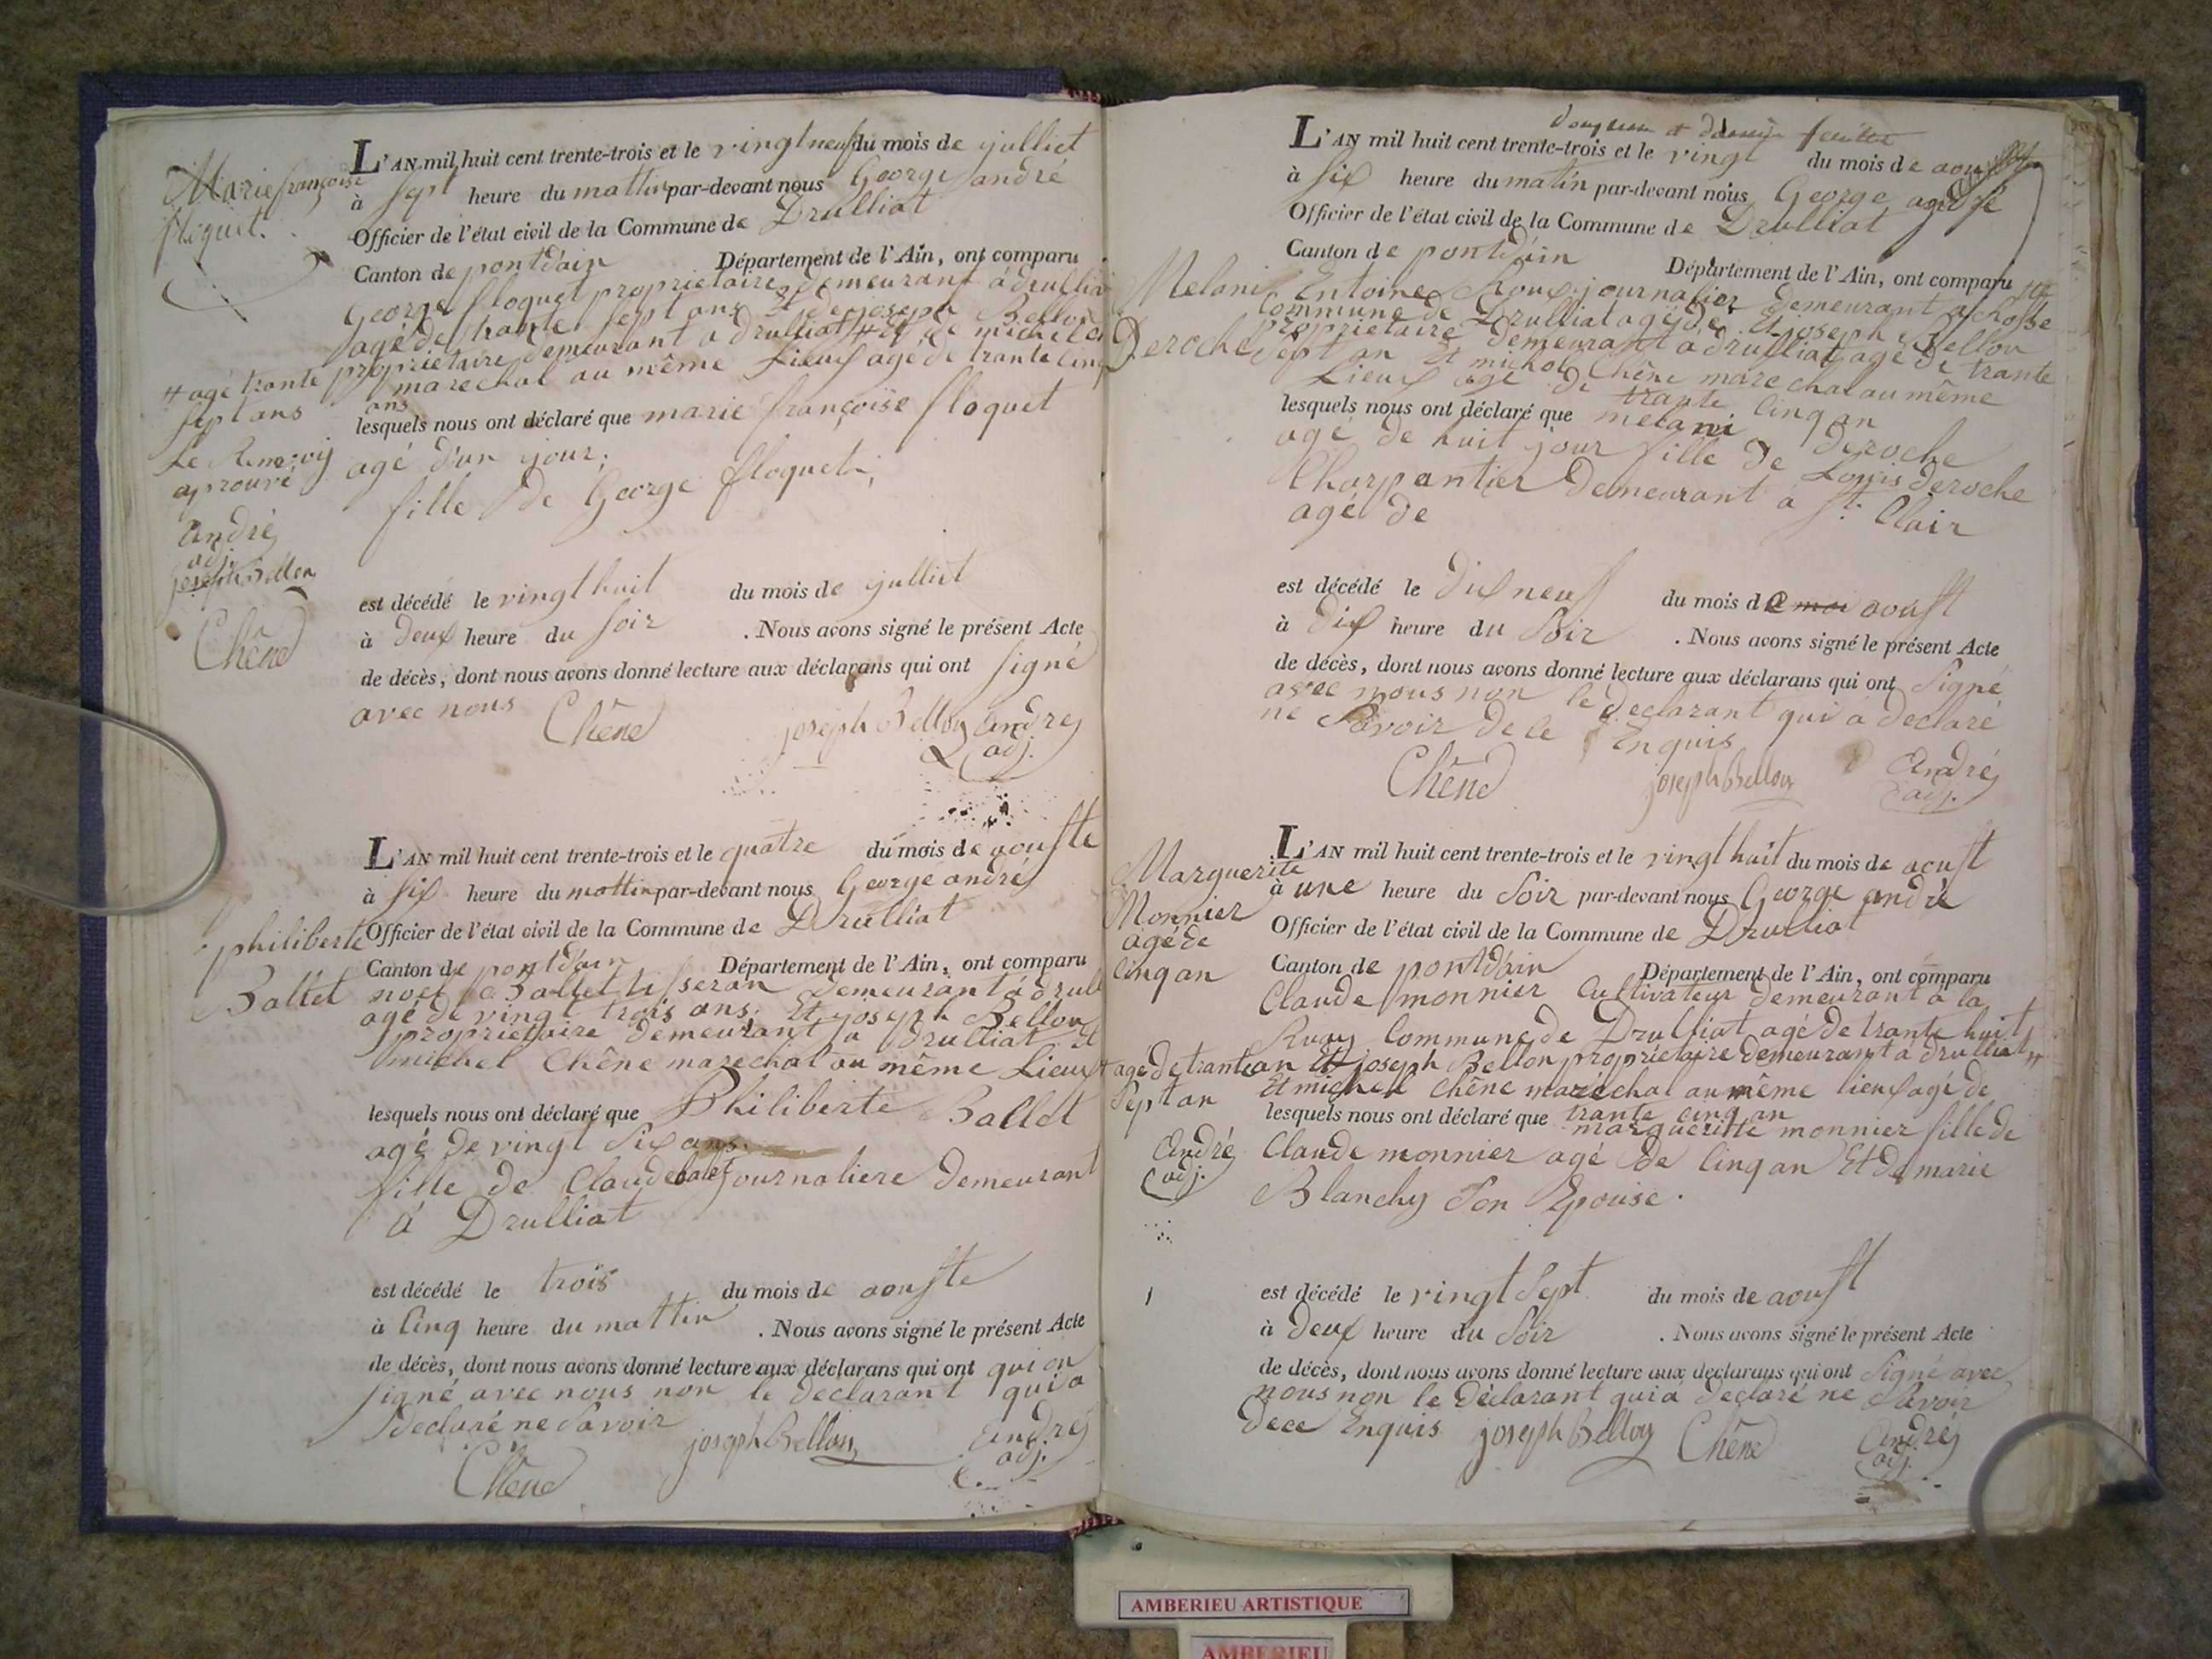 Marie françoise
floquet.
L'AN mil huit cent trente-trois et le vingt neuf du mois de julliet
à sept heure du mattin par-devant nous George andré
Officier de l'état civil de la Commune de Drulliat
Canton de pontdain Département de l'Ain, ont comparu
George floquet proprietaire demeurant à drulliat
agé de trante sept ans Et de joseph Bellon
proprietaire demeurant a drulliat # Et de michel chêne
marechal au même Lieux agé de trante cinq
ans
# agé trante
sept ans
Le Renvoij
aprouvé
André
adj.
joseph Bellon
Chêne
lesquels nous ont déclaré que marie françoise floquet
agé d'un jour,
fille de George floquet,
est décédé le vingt huit du mois de julliet
à deux heure du soir . Nous avons signé le présent Acte
de décès, dont nous avons donné lecture aux déclarans qui ont signé
avec nous
Chêne joseph Bellon André
adj.
L'AN mil huit cent trente-trois et le quatre du mois de aouste
à six heure du mattin par-devant nous George andré
Officier de l'état civil de la Commune de Drulliat
philiberte
Ballet
Canton de pontdain Département de l'Ain, ont comparu
noel Ballet tisseran demeurant à drul
agé de vingt trois ans. Et joseph Bellon
proprietaire demeurant a drulliat Et
michel Chêne marechal au même Lieux
lesquels nous ont déclaré que Philiberte Ballet
agé de vingt six ans.
fille de Claude balet journaliere demeurant
à Drulliat
est décédé le trois du mois de aouste
à Cinq heure du mattin . Nous avons signé le présent Acte
de décès, dont nous avons donné lecture aux déclarans qui ont qui on
signé avec nous non le declarant qui a
declaré ne savoir
Chêne joseph Bellon André
adj.
L'AN mil huit cent trente-trois et le vingt du mois de aoust
à six heure du matin par-devant nous George andré
Officier de l'état civil de la Commune de Drulliat
Canton de pontdain Département de l'Ain, ont comparu
Melani
Deroche
Entoine Roux journalier demeurant a chosse
Commune de Drulliat agé de Et joseph Bellon
proprietaire demeurant a drulliat agé de trante
sept an Et michel Chêne marechal au même
Lieux agé de trante cinq an
lesquels nous ont déclaré que melani deroche
agé de huit jour fille de Louis deroche
Charpantier demeurant a St. Clair
agé de
est décédé le dix neuf du mois de aoust
à dix heure du Soir . Nous avons signé le présent Acte
de décès, dont nous avons donné lecture aux déclarans qui ont Signé
avec nous non le declarant qui a declaré
ne Savoir de ce Enquis
Chêne joseph Bellon André
adj.
L'AN mil huit cent trente-trois et le vingt huit du mois de aoust
à une heure du Soir par-devant nous George andré
Officier de l'état civil de la Commune de Drulliat
Marguerite
Monnier
agé de
Cinq an
Canton de pontdain Département de l'Ain, ont comparu
Claude monnier Cultivateur demeurant à la
Ruay Commune de Drulliat agé de trante huit
an Et joseph Bellon proprietaire demeurant à drulliat #
Et michel Chêne marechal au même lieux agé de
trante cinq an
# agé de trante
Sept an
André
adj.
lesquels nous ont déclaré que margueritte monnier fille de
Claude monnier agé de Cinq an Et de marie
Blanchy Son Epouise.
est décédé le vingt Sept du mois de aoust
à deux heure du Soir . Nous avons signé le présent Acte
de décès, dont nous avons donné lecture aux déclarans qui ont Signé avec
nous non le Déclarant qui a declaré ne Savoir
dece Enquis joseph Bellon Chêne André
adj.
AMBERIEU ARTISTIQUE
AMBERIEU